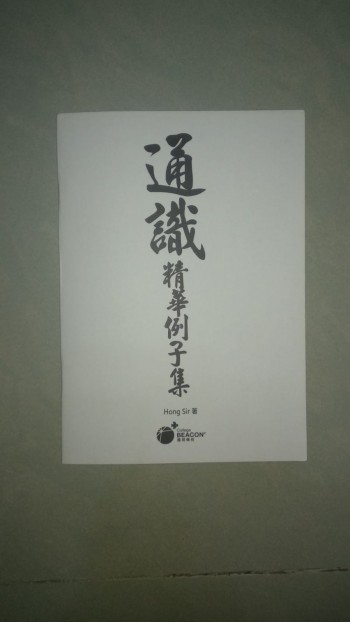 通識
精華例子集
Hong Sir 著
College
BEACON